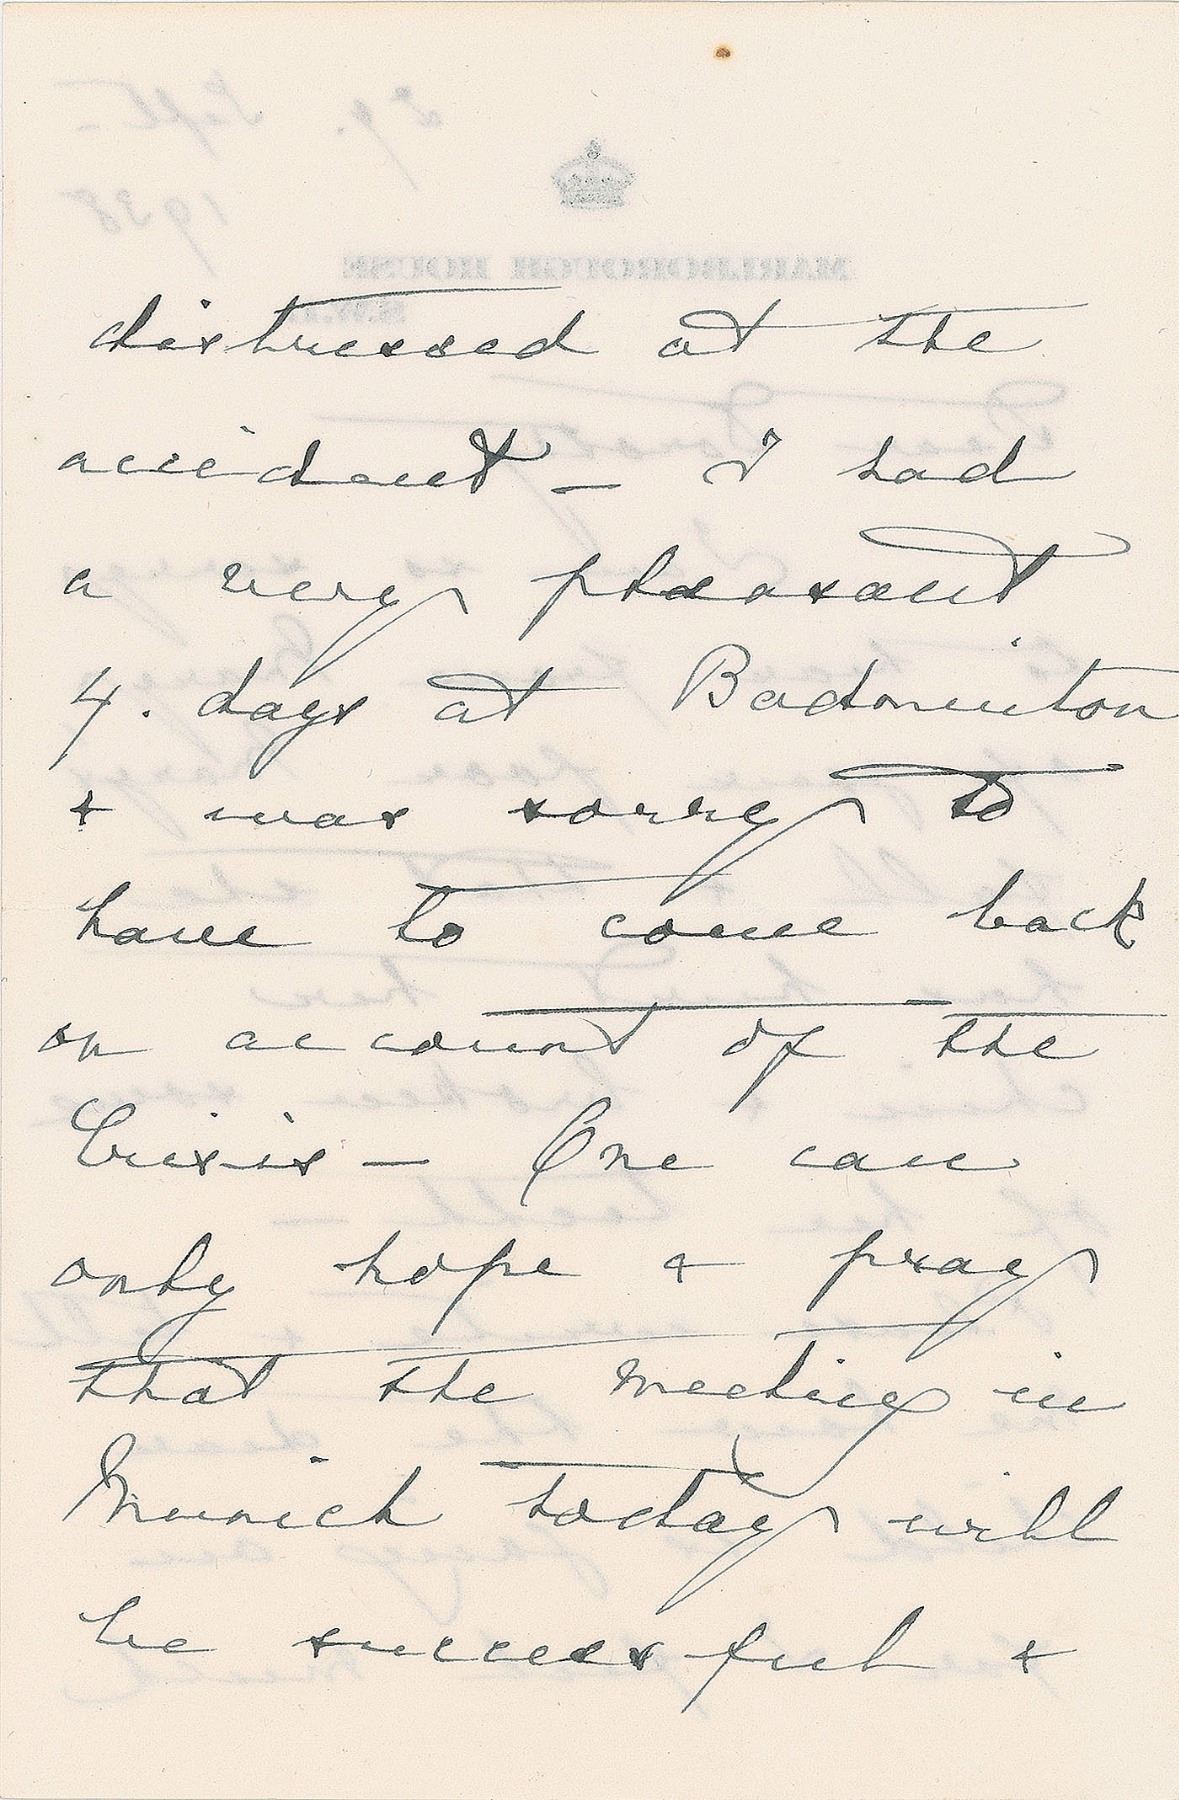 distressed at the
accident — I had
a very pleasant
4. days at Badminton
& was sorry to
have to come back
on account of the
Crisis — One can
only hope & pray
that the meeting in
Munich today will
be successful &